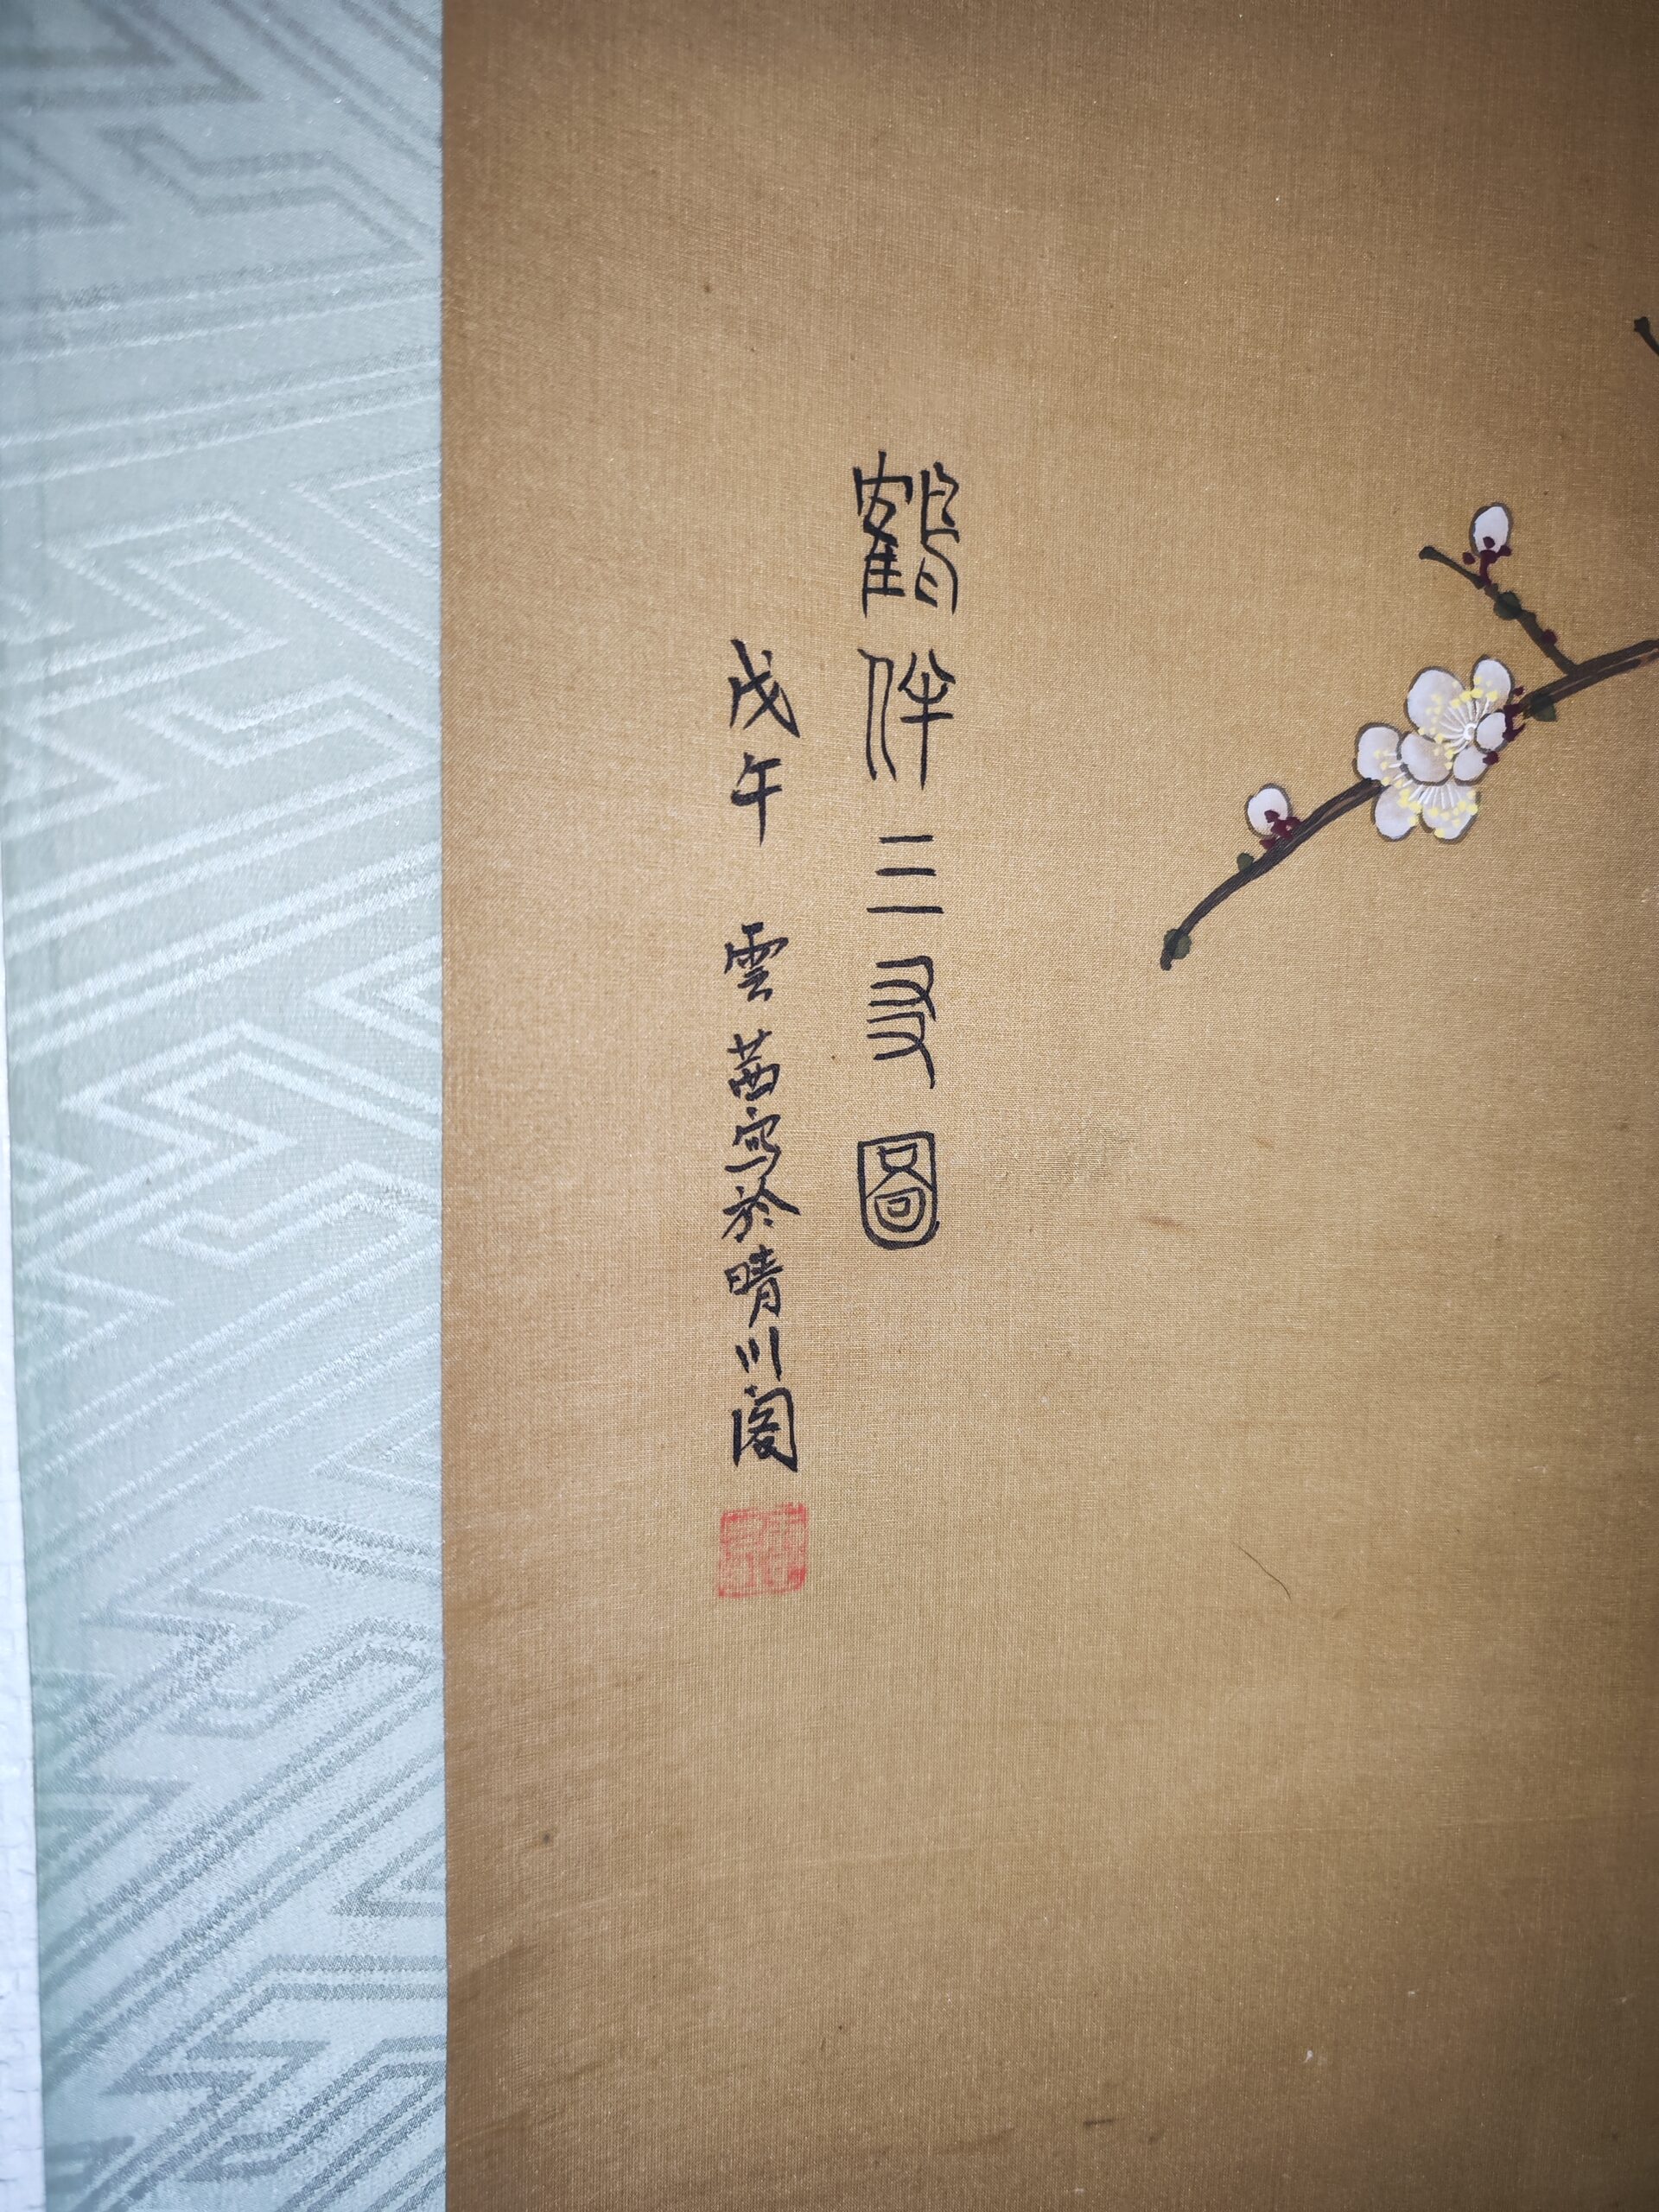 鶴伴三友圖
戊午 雲茜寫於晴川閣